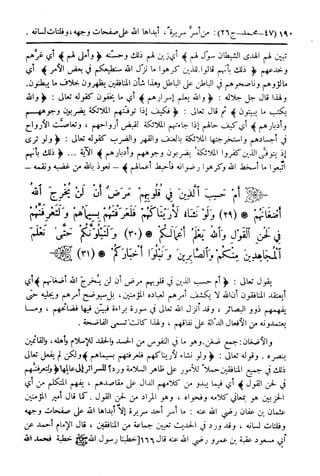 ١٩٠ (٤٧ - محمد - ج٢٦) : من أسرّ سريرة، أبداها الله على صفحات وجهه، وفلتات لسانه .
تبين لهم الهدى الشيطان سول لهم ﴾ أي زين لهم ذلك وحسّنه ﴿ وأملى لهم ﴾ أي غرّهم
وخدعهم ﴿ ذلك بأنهم قالوا للذين كرهوا ما نزل الله سنطيعكم في بعض الأمر ﴾ أي
مالؤوهم وناصحوهم في الباطن على الباطل وهذا شأن المنافقين يظهرون خلاف ما يبطنون.
ولهذا قال جل جلاله : ﴿ والله يعلم إسرارهم ﴾ أي ما يسرون وما يخفون كقوله تعالى : ﴿ والله
يكتب ما يبيتون ﴾ ثم قال تعالى : ﴿ فكيف إذا توفتهم الملائكة يضربون وجوههم
وأدبارهم ﴾ أي كيف حالهم إذا جاءتهم الملائكة لقبض أرواحهم ، وتعاصت الأرواح
في أجسادهم واستخرجتها الملائكة بالعنف والقهر والضرب كقوله تعالى : ﴿ ولو ترى
إذ يتوفى الذين كفروا الملائكة يضربون وجوههم وأدبارهم ﴾ الآية ... ﴿ ذلك بأنهم
اتبعوا ما أسخط الله وكرهوا رضوانه فأحبط أعمالهم ﴾ - نعوذ بالله من غضبه ونقمه -
أَمْ حَسِبَ الَّذِينَ فِي قُلُوبِهِم مَّرَضٌ أَن لَّن يُخْرِجَ اللَّهُ
أَضْغَانَهُمْ ﴿٢٩﴾ وَلَوْ نَشَاءُ لَأَرَيْنَاكَهُمْ فَلَعَرَفْتَهُم بِسِيمَاهُمْ وَلَتَعْرِفَنَّهُمْ
فِي لَحْنِ الْقَوْلِ وَاللَّهُ يَعْلَمُ أَعْمَالَكُمْ ﴿٣٠﴾ وَلَنَبْلُوَنَّكُمْ حَتَّى نَعْلَمَ
الْمُجَاهِدِينَ مِنكُمْ وَالصَّابِرِينَ وَنَبْلُوَ أَخْبَارَكُمْ ﴿٣١﴾
يقول تعالى : ﴿ أم حسب الذين في قلوبهم مرض أن لن يخرج الله أضغانهم ﴾ أي
أيعتقد المنافقون أن الله لا يكشف أمرهم لعباده المؤمنين ، بل سيوضح أمرهم ويجليه حتى
يفهمهم ذوو البصائر ، وقد أنزل الله تعالى في سورة براءة فبين فيها فضائحهم ، وما
يعتمدونه من الأفعال الدالة على نفاقهم ، ولهذا كانت تسمى الفاضحة .
والأضغان : جمع ضغن . وهو ما في النفوس من الحسد والحقد للإسلام وأهله، والقائمين
بنصره . وقوله تعالى : ﴿ ولو نشاء لأريناكهم فلعرفتهم بسيماهم ﴾ ولكن لم يفعل تعالى
ذلك في جميع المنافقين حملاً للأمور على ظاهر السلامة ورداً للسرائر إلى عالمها ﴿ ولتعرفنهم
في لحن القول ﴾ أي فيما يبدو من كلامهم الدال على مقاصدهم ، يفهم المتكلم من أي
الحزبين هو بمعاني كلامه وفحواه ، وهو المراد من لحن القول . كما قال أمير المؤمنين
عثمان بن عفان رضي الله عنه : ما أسر أحد سريرة إلاّ أبداها الله على صفحات وجهه
وفلتات لسانه ، وقد ورد في الحديث تعيين جماعة من المنافقين ، قال الإمام أحمد عن
أبي مسعود عقبة بن عمرو رضي الله عنه قال ١٦٦ [خطبنا رسول الله ﷺ خطبة فحمد الله